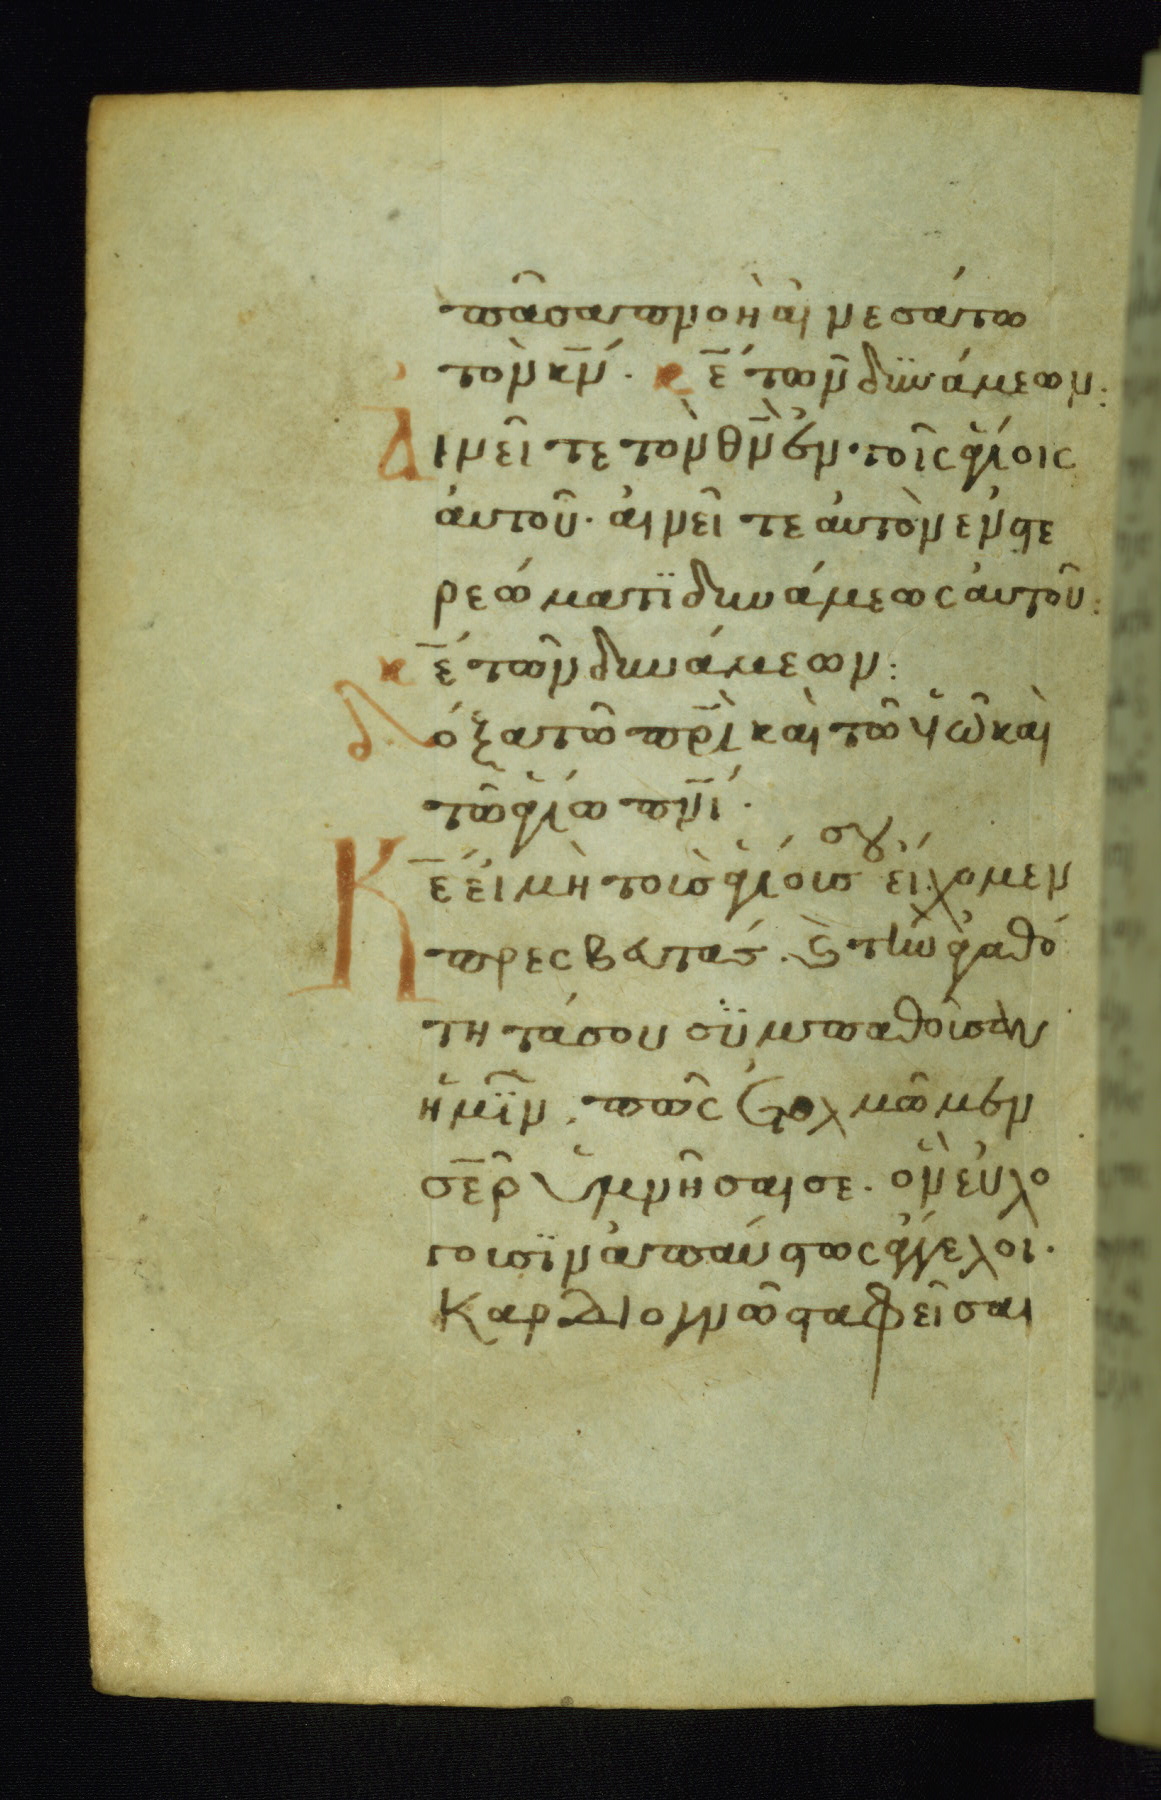 πᾶσα πνοὴ αἰνεσάτω
τὸν κ̅ν̅. κ̅ε̅ τῶν δυνάμεων:
Αἰνεῖτε τὸν θ̅ν̅ ἐν τοῖς ἁγίοις
ἀυτοῦ. ἀινεῖτε ἀυτὸν ἐν στε
ρεώματι δυνάμεως ἀυτοῦ:
κ̅ε̅ τῶν δυνάμεων:
Δόξα τῶ π̅ρ̅ὶ καὶ τῶ υ̅ῶ καὶ
τῶ ἁγίω π̅ν̅ι.
Κ̅ε̅ εἰ μὴ τοὺσ ἁγίουσ σου εἴχομεν
πρεσβευτάς. καὶ τὴν ἀγαθό
τητά σου συμπαθοῦσαν
ἡμῖν. πῶς ἐτολμῶμεν
σ̅ε̅ρ̅ ὑμνῆσαι σε. ὃν ἐυλο
γοῦσιν ἀπαύστως ἄγγελοι.
Καρδιογνῶστα φεῖσαι